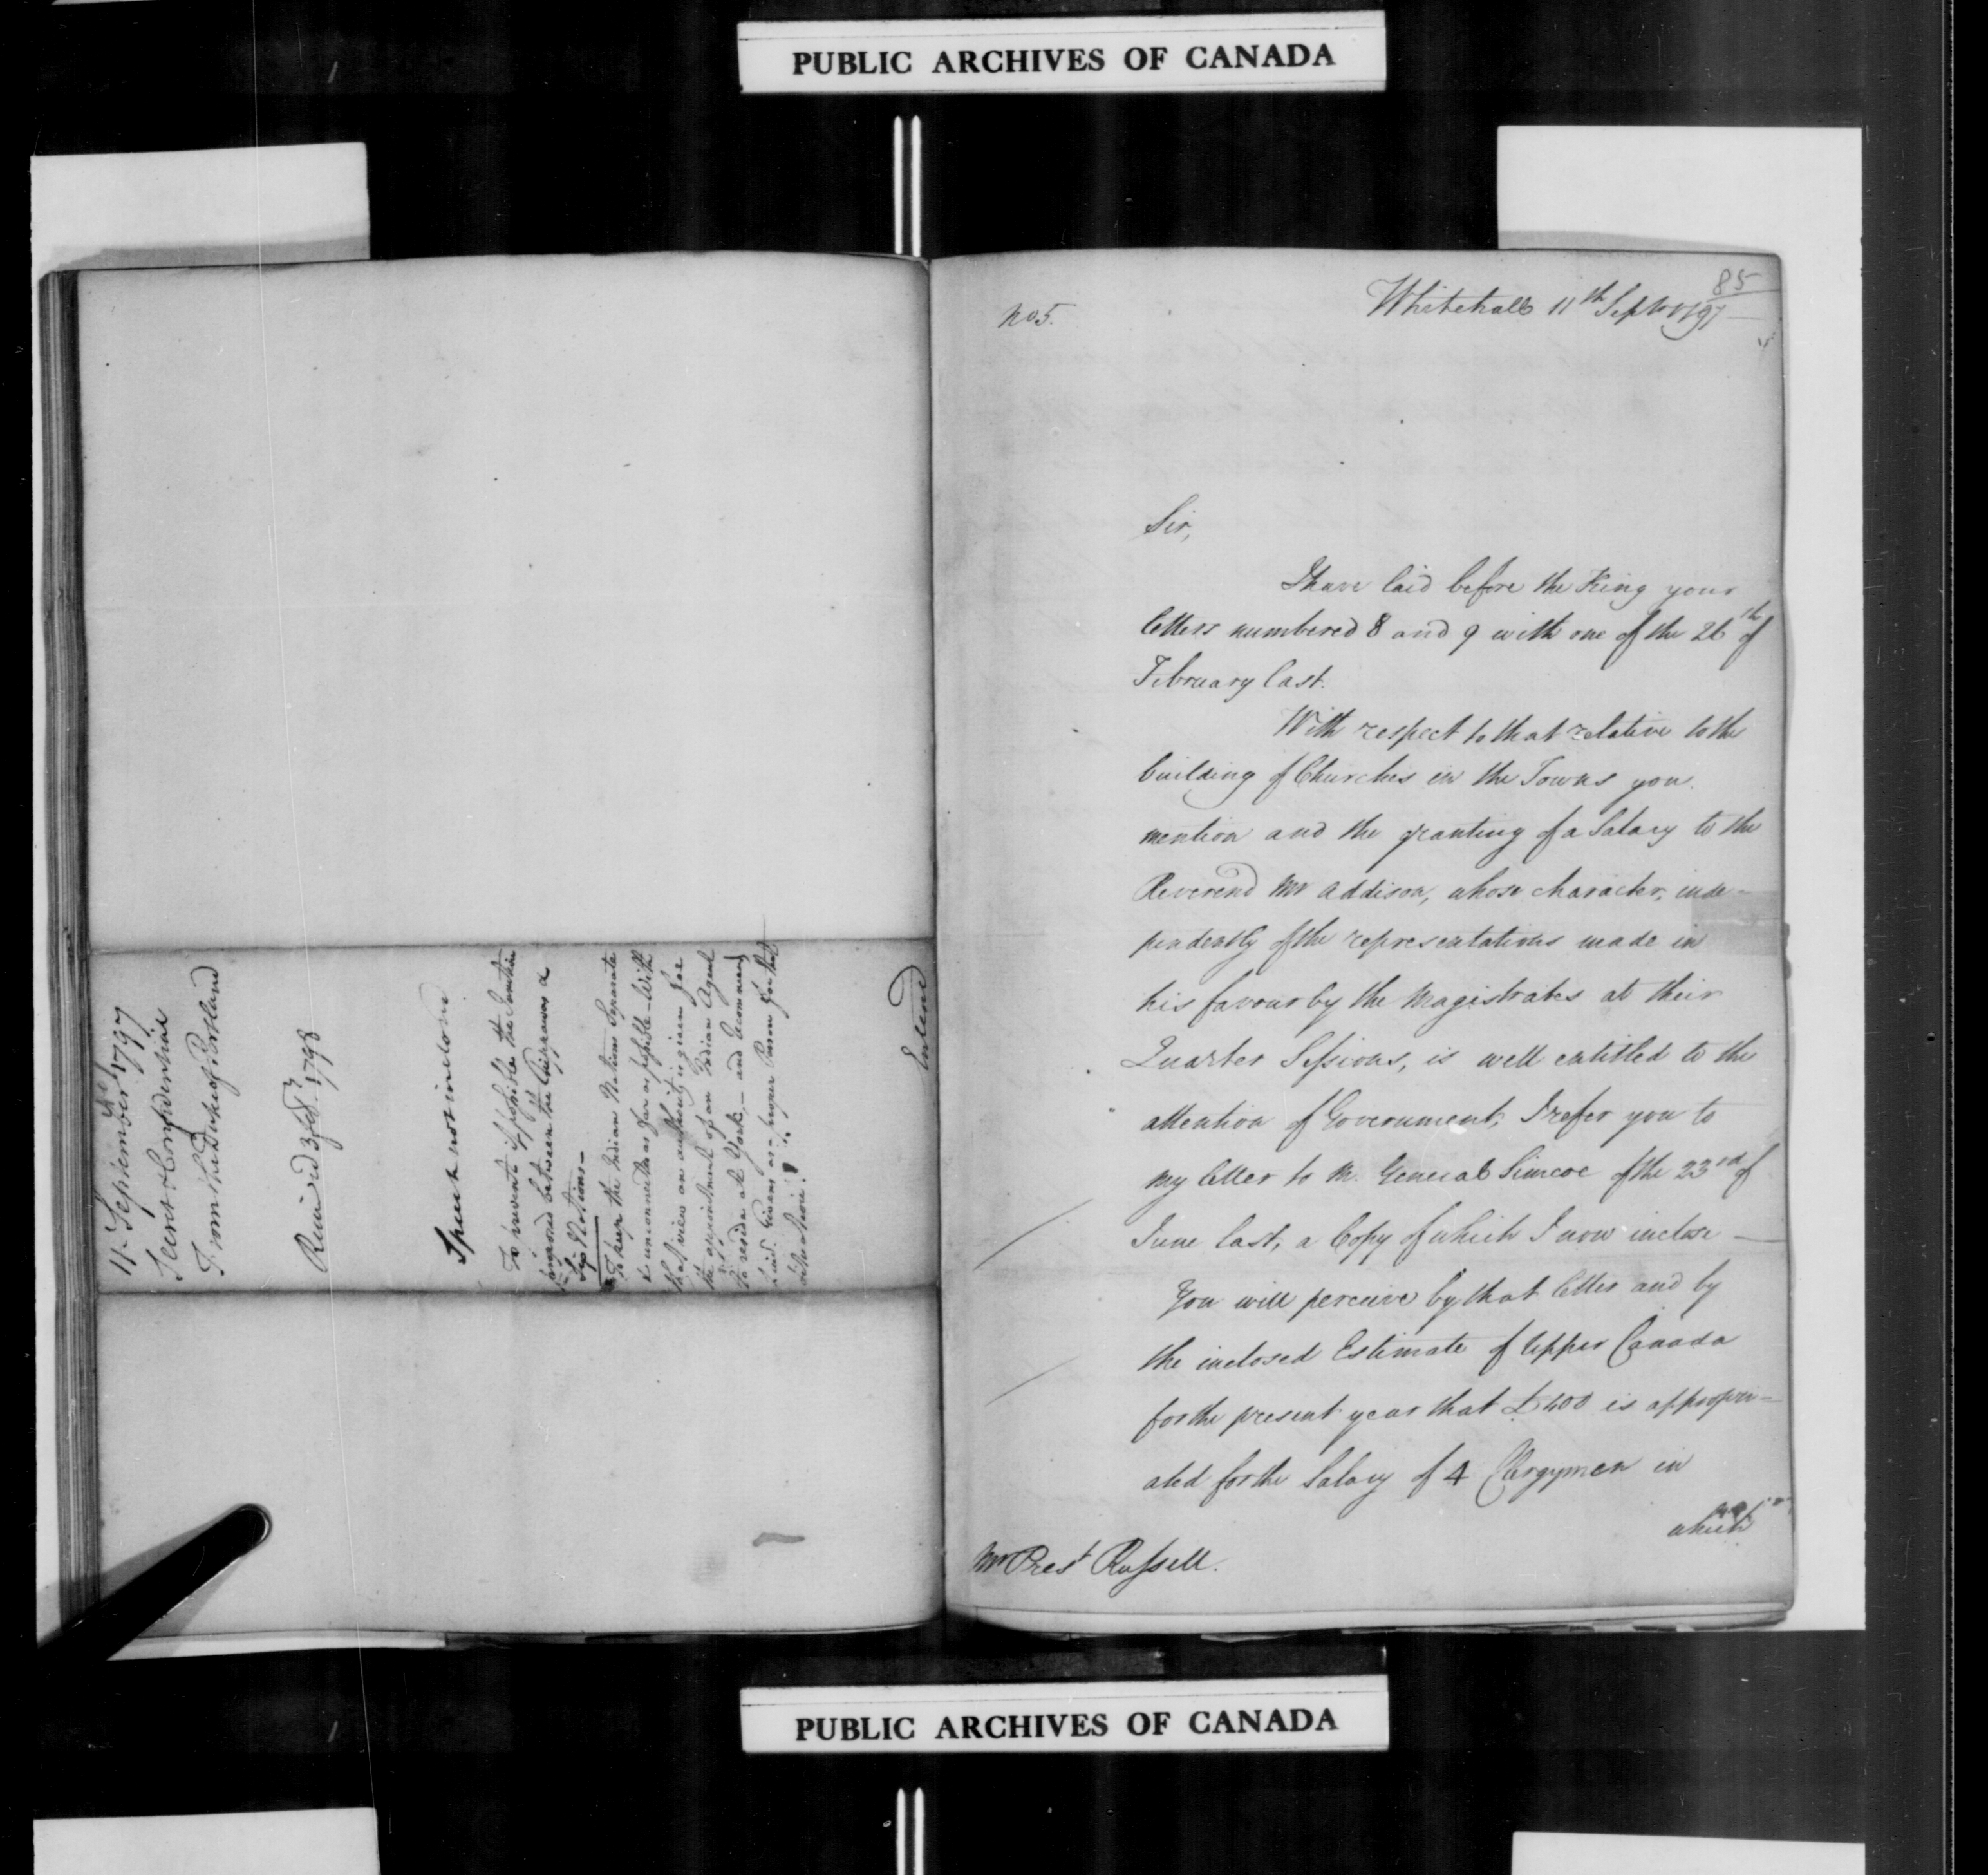 PUBLIC ARCHIVES OF CANADA
11th September 1797
Secret & Confidential
From the Duke of Portland
Received 3 Feby 1798
To prevent if possible the Connection
proposed between the Chippawas &
Six Nations—
To keep the Indian Nations Separate
& unconnected as far as possible—With
that view an authority is given for
the appointment of an Indian Agent
to reside at York,— and recommends
Lieut. Givens as a proper Person for that
Entered
85
No 5.
Whitehall 11th Septr 1797
Sir,
I have laid before the King your
letters numbered 8 and 9 with one of the 26th of
February last.
With respect to that relative to the
building of Churches in the Towns you
mention and the granting of a Salary to the
Reverend Mr Addison, whose character, inde-
pendently of the representations made in
his favour by the Magistrates at their
Quarter Sessions, is well entitled to the
attention of Government; I refer you to
my letter to M. General Simcoe of the 23rd of
June last, a Copy of which I now inclose—
You will perceive by that letter and by
the inclosed Estimate of Upper Canada
for the present year that £400 is appropri-
ated for the Salary of 4 Clergymen in
which
Mr Prest Russell.
PUBLIC ARCHIVES OF CANADA